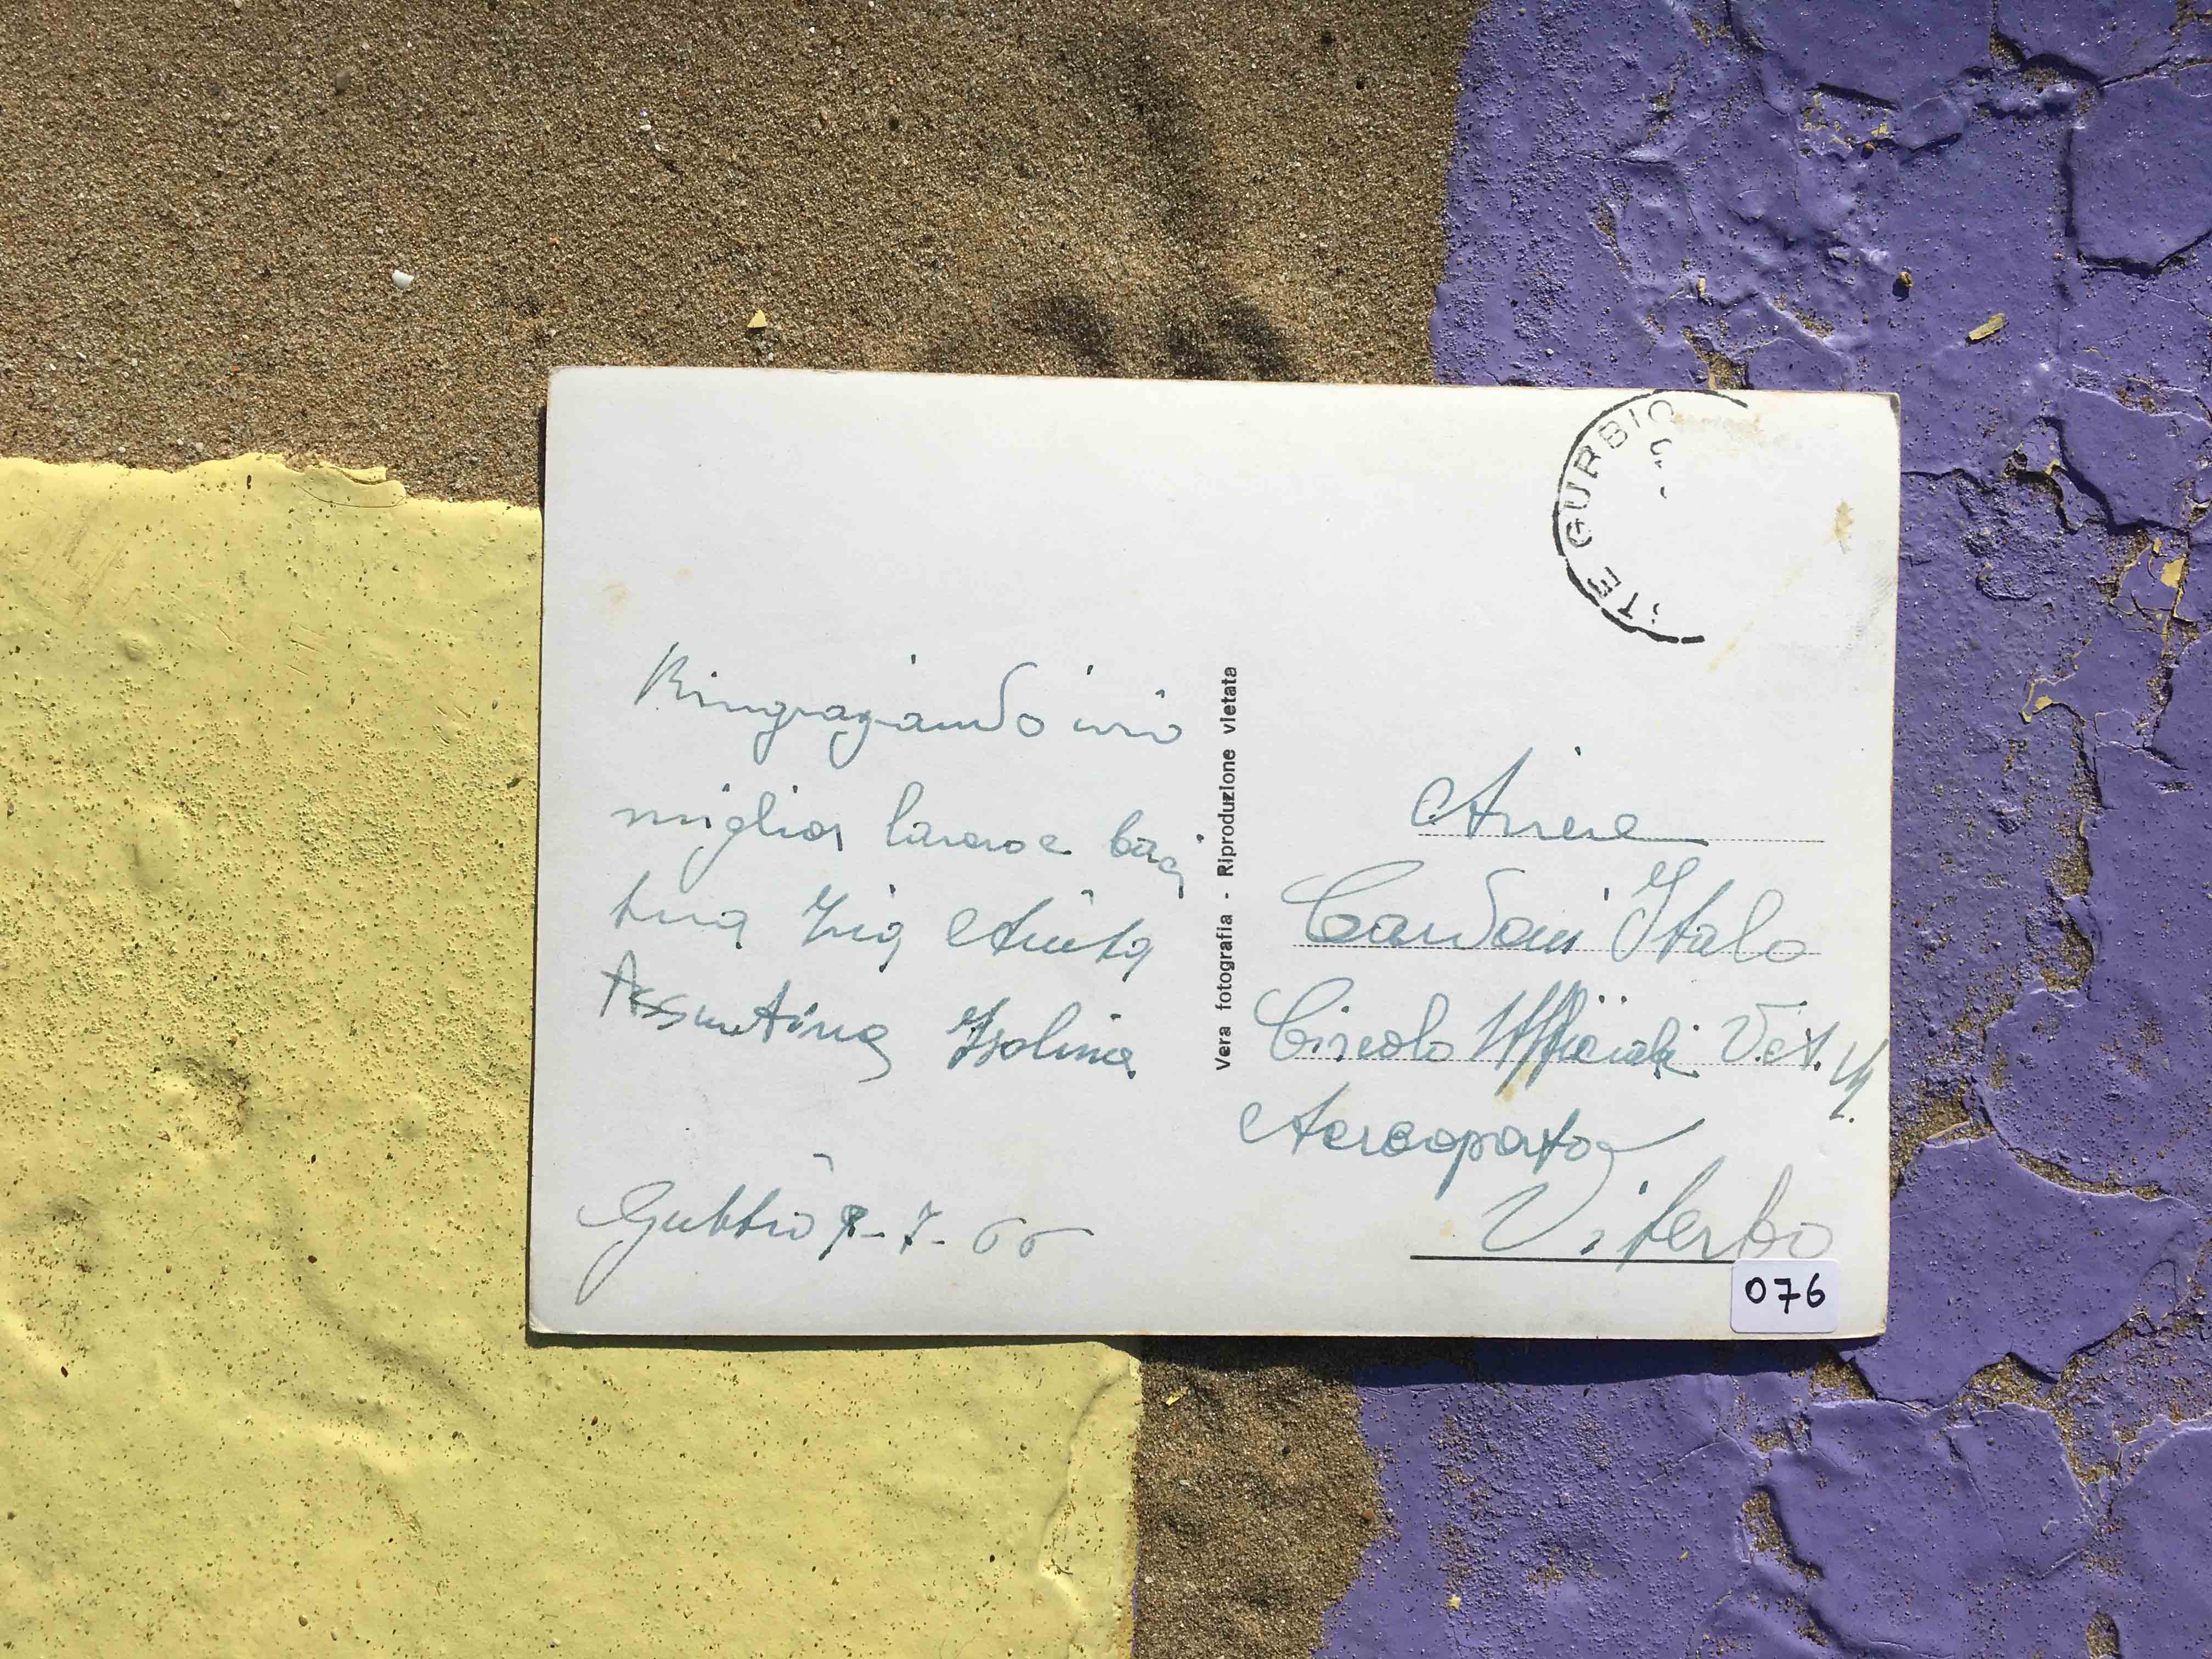 Ringraziando invio
miglior lavoro e baci
tua Zia Anita
Assuntina Isolina
Gubbio 9-7-66
Vera fotografia - Riproduzione vietata
TE GUBBIO
Aviere
Cardoni Italo
Circolo Ufficiali V.A.M.
Aereoporto
Viterbo
076